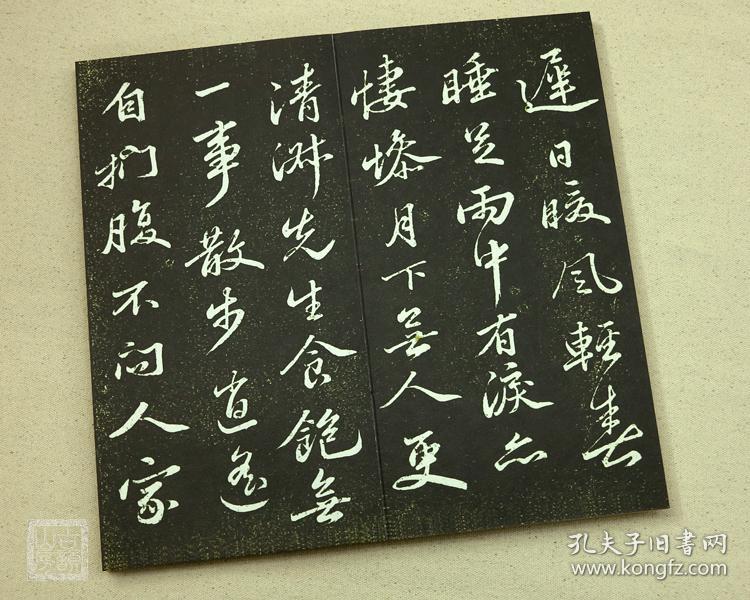 遲日暖風輕春
睡足雨中有淚亦
悽慘月下無人更
清淑先生食飽無
一事散步逍遙
自捫腹不問人家
孔夫子旧書网
www.kongfz.com